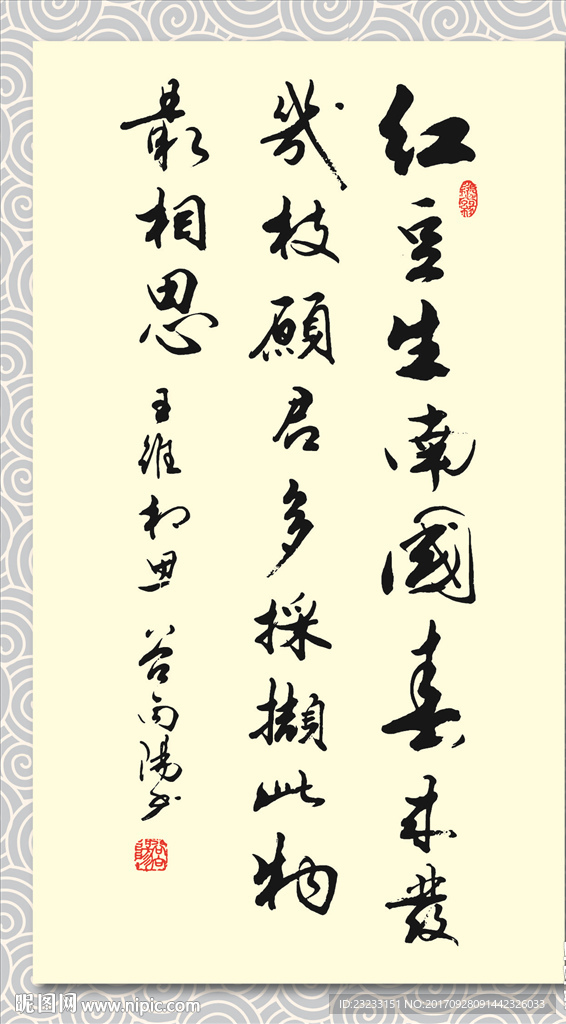 红豆生南國春来發
幾枝願君多採擷此物
最相思 王維相思 谷向陽书
昵图网 www.nipic.com
ID:23233151 NO:20170928091442326033